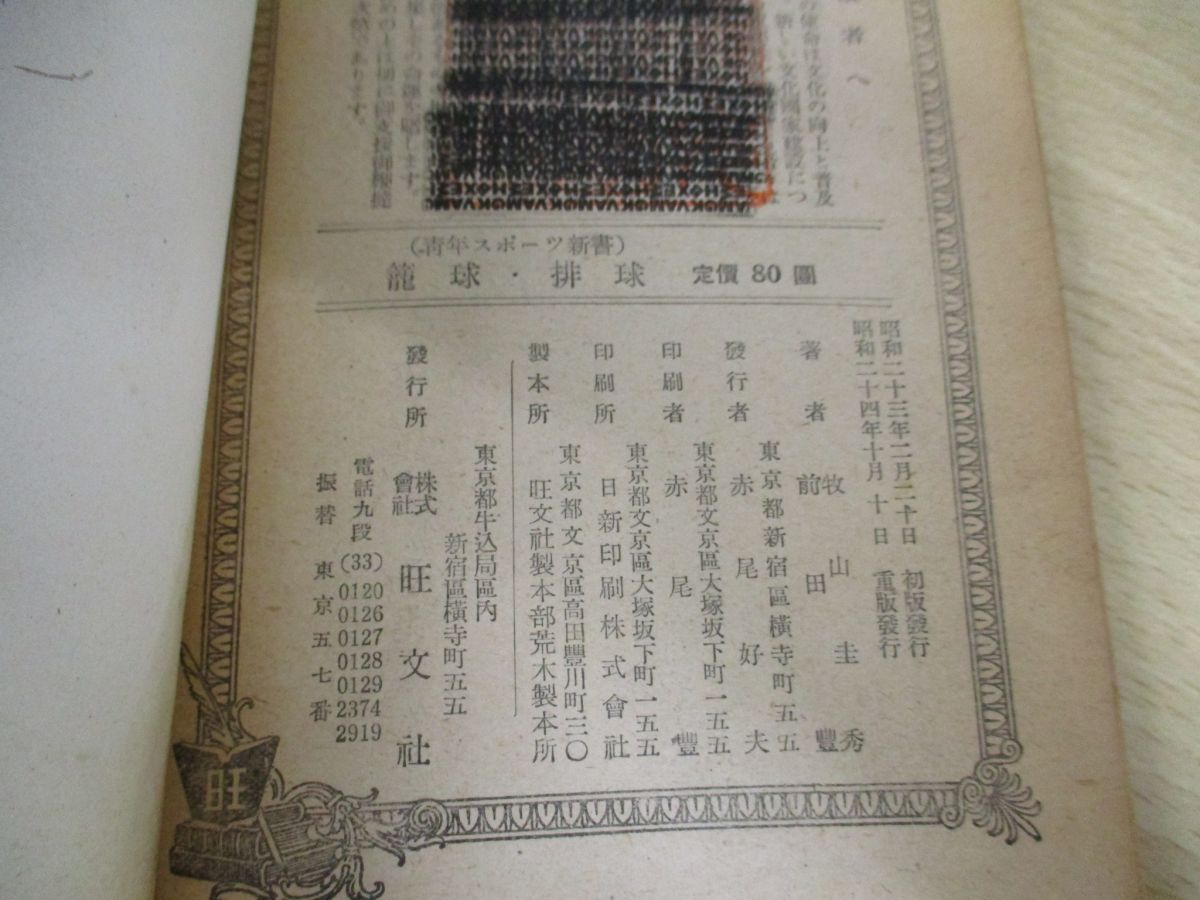 者へ
文化の向上と普及
新しい文化國家建設につ
あります。
(靑年スポーツ新書)
籠球・排球 定價80圓
昭和二十三年二月二十日 初版發行
昭和二十四年十月十日 重版發行
著者 牧山圭秀
前田豐
東京都新宿區橫寺町五五
發行者 赤尾好夫
東京都文京區大塚坂下町一五五
印刷者 赤尾豐
東京都文京區大塚坂下町一五五
印刷所 日新印刷株式會社
東京都文京區高田豐川町三〇
製本所 旺文社製本部荒木製本所
東京都牛込局區內
新宿區橫寺町五五
發行所 株式會社 旺文社
電話九段(33)0120 0126 0127 0128 0129 2374 2919
振替東京五七番
旺